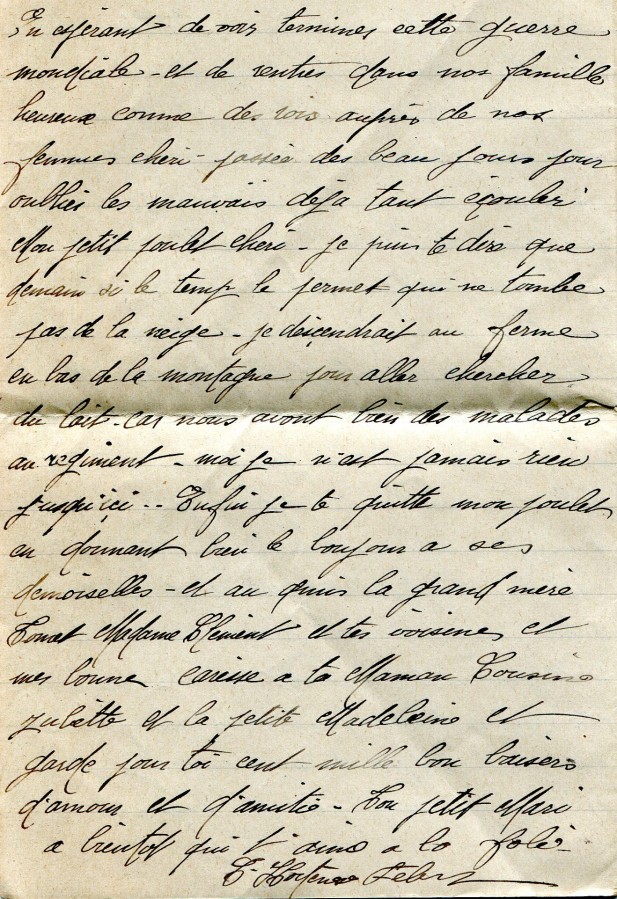 En espérant de voir terminer cette guerre
mondiale - et de rentrer dans nos famille
heureux comme des rois auprès de nos
femmes chéri - passée des beau jours pour
oubliés les mauvais déja tant éçoulér
Mon petit poulet chéri - je puis te dire que
demain si le temp le permet qui ne tombe
pas de la neige - je desçendrait au ferme
en bas de la montagne pour aller chercher
du lait - car nous avont bien des malades
au régiment - moi je n'est jamais rien
jusqu'ici .. Enfin je te quitte mon poulet
en donnant bien le bonjour a ses
demoiselles - et au la grand mère
Madame Clément et tes voisines et
mes bonne caresse a ta Maman Cousine
Juliette et la petite Madeleine et
garde pour toi cent mille bon baisers
d'amour et d'amitie - Ton petit Mari
a bientot qui t'aime a la folie -